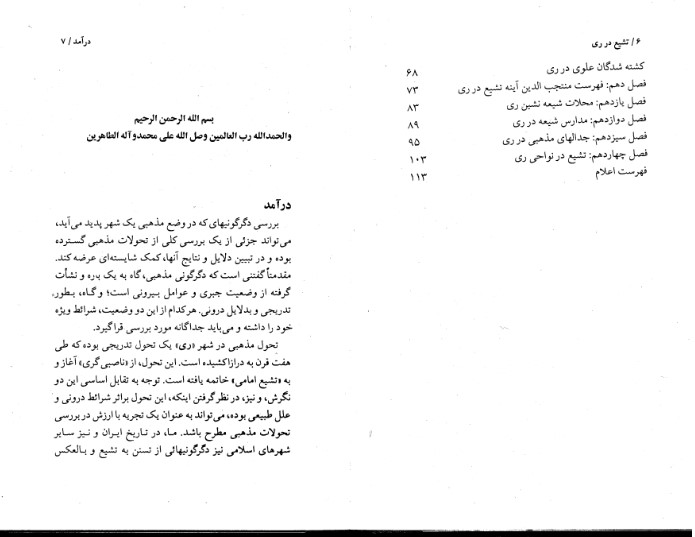 ۶ / تشیع در ری
کشته شدگان علوی در ری ۶۸
فصل دهم: فهرست منتجب الدین آینه تشیع در ری ۷۳
فصل یازدهم: محلات شیعه نشین ری ۸۳
فصل دوازدهم: مدارس شیعه در ری ۸۹
فصل سیزدهم: جدالهای مذهبی در ری ۹۵
فصل چهاردهم: تشیع در نواحی ری ۱۰۳
فهرست اعلام ۱۱۳
درآمد / ۷
بسم الله الرحمن الرحیم
والحمدالله رب العالمین وصل الله علی محمدو آله الطاهرین
درآمد
بررسی دگرگونیهای که در وضع مذهبی یک شهر پدید می‌آید،
می‌تواند جزئی از یک بررسی کلی از تحولات مذهبی گسترده
بوده و در تبیین دلایل و نتایج آنها، کمک شایسته‌ای عرضه کند.
مقدمتاً گفتنی است که دگرگونی مذهبی، گاه به یک باره و نشأت
گرفته از وضعیت جبری و عوامل بیرونی است؛ و گاه، بطور
تدریجی و بدلایل درونی. هرکدام از این دو وضعیت، شرائط ویژه
خود را داشته و می‌باید جداگانه مورد بررسی قراگیرد.
تحول مذهبی در شهر «ری» یک تحول تدریجی بوده که طی
هفت قرن به درازا کشیده است. این تحول، از «ناصبی گری» آغاز و
به «تشیع امامی» خاتمه یافته است. توجه به تقابل اساسی این دو
نگرش، و نیز، در نظر گرفتن اینکه، این تحول براثر شرائط درونی و
علل طبیعی بوده، می‌تواند به عنوان یک تجربه با ارزش در بررسی
تحولات مذهبی مطرح باشد. ما، در تاریخ ایران و نیز سایر
شهرهای اسلامی نیز دگرگونیهائی از تسنن به تشیع و بالعکس